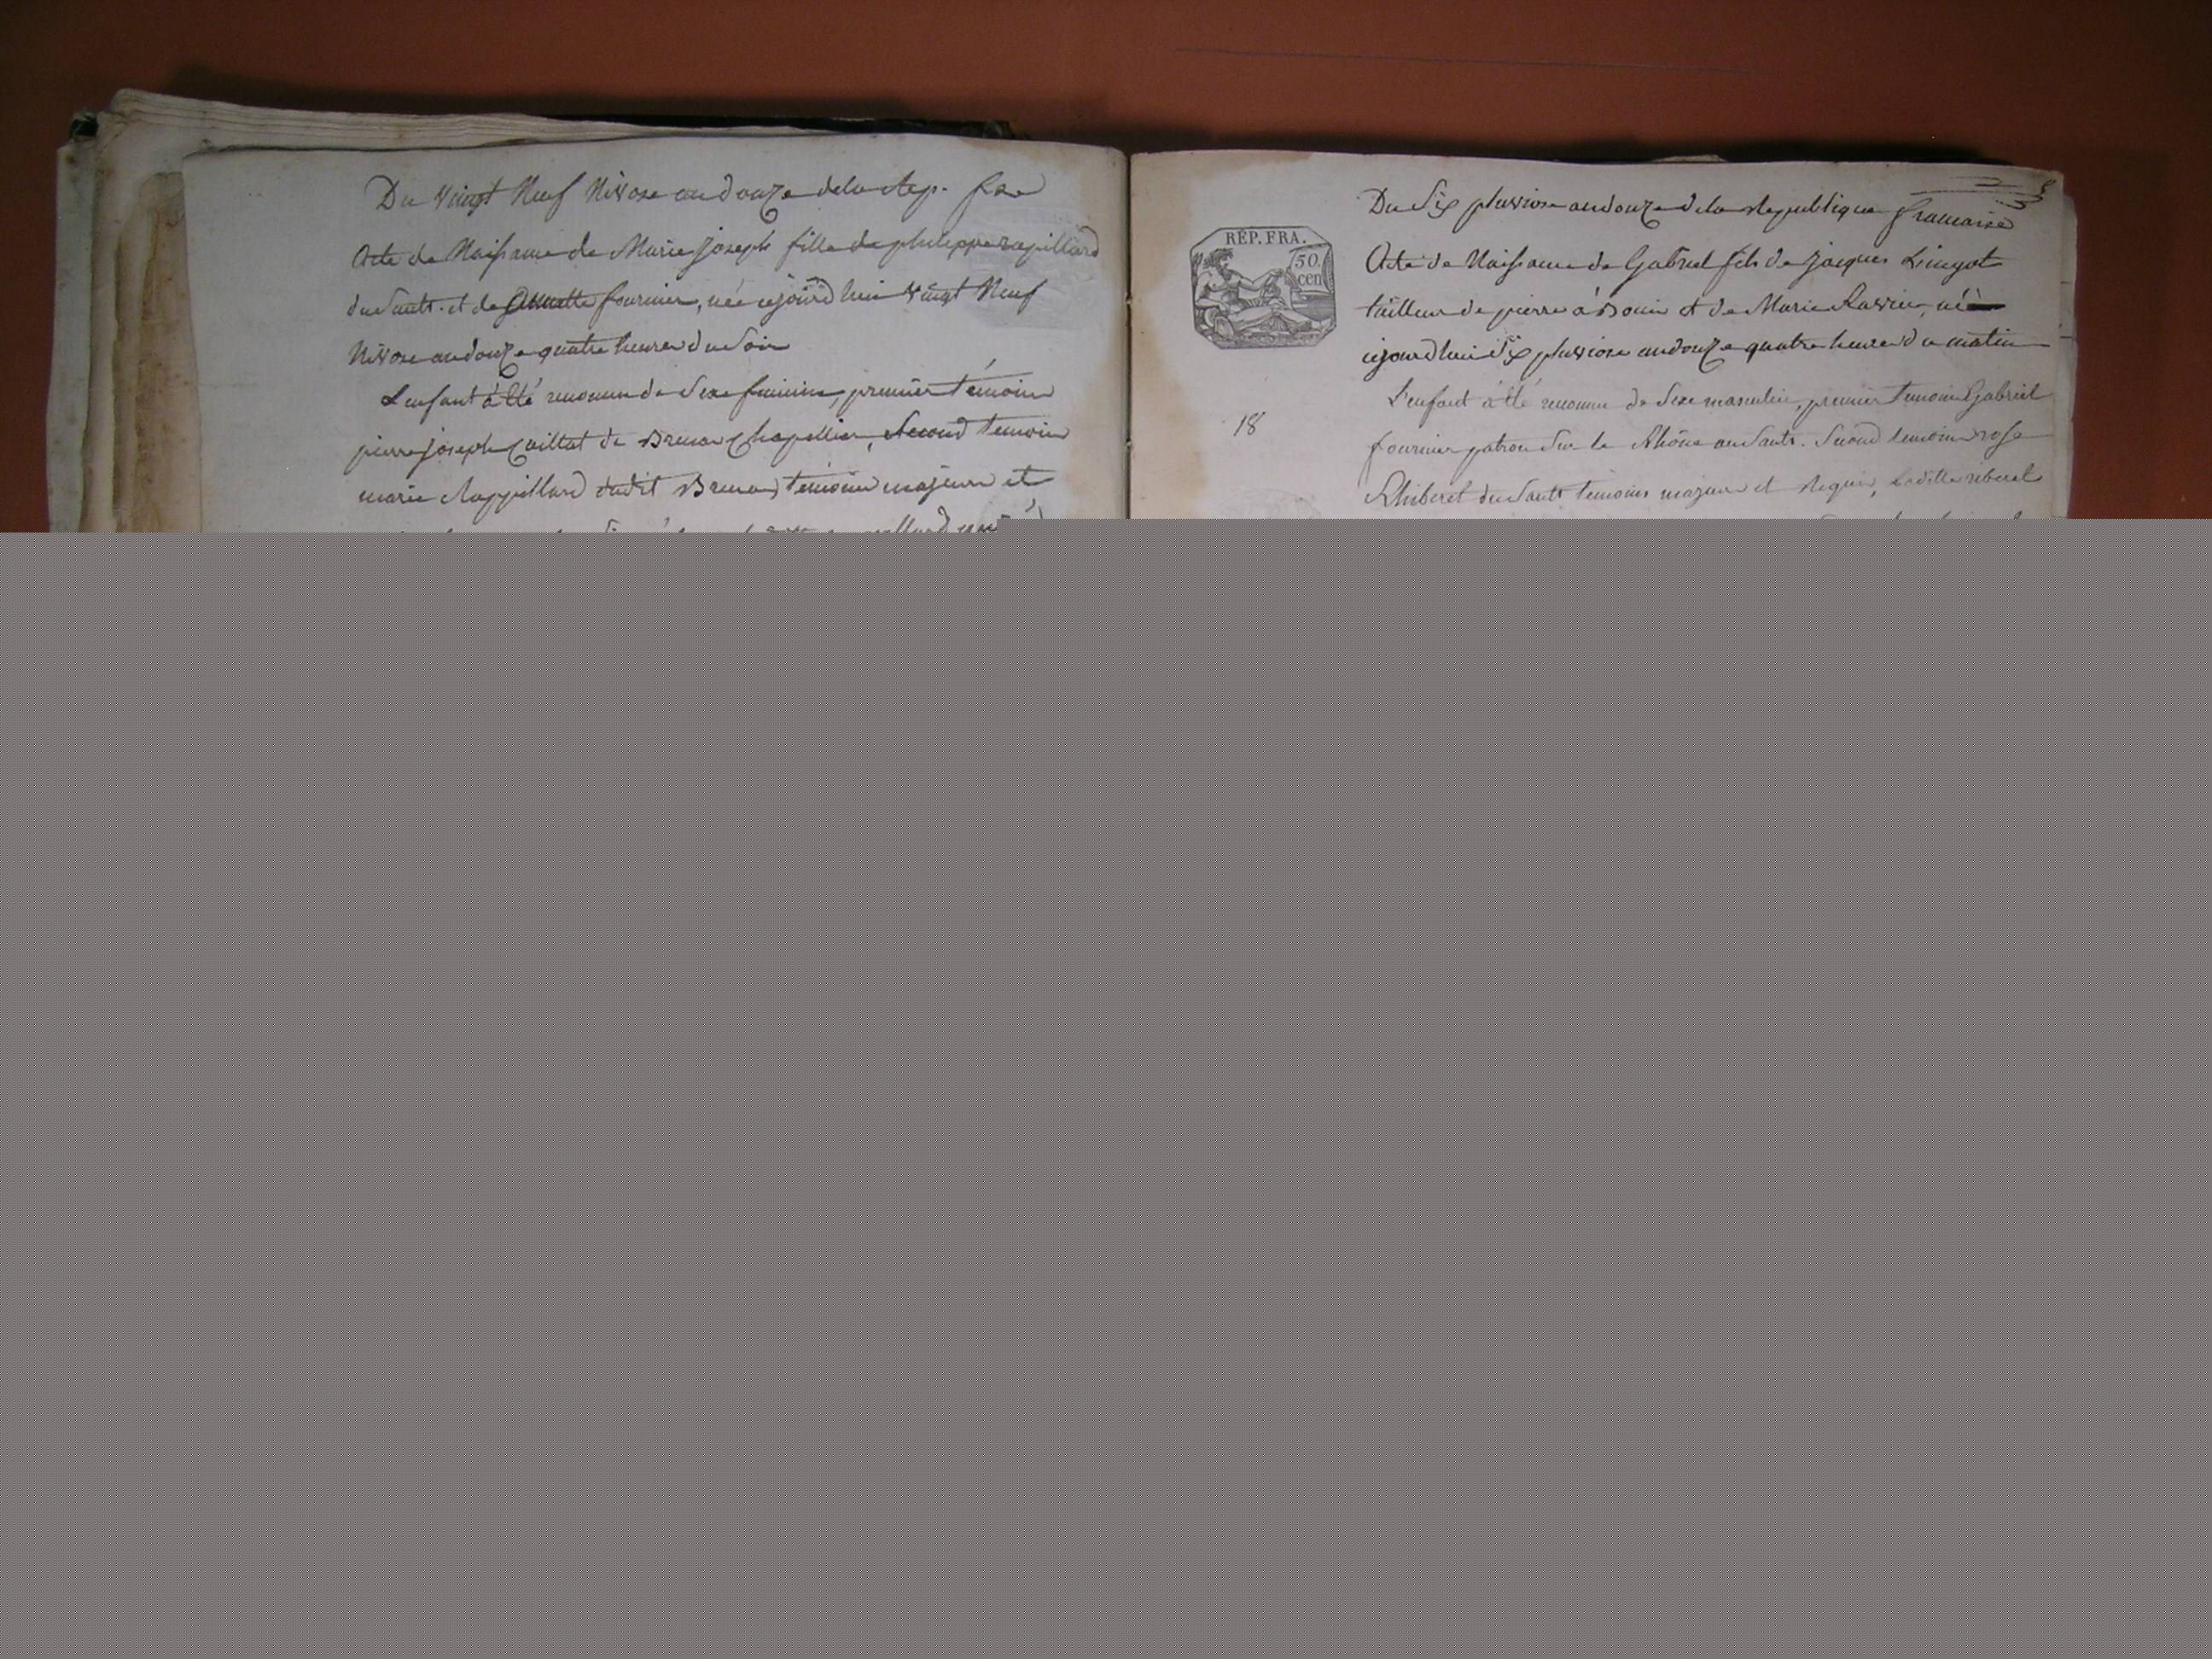 Du vingt Neuf Nivose an douze de la Rep. fse
Acte de Naissance de Marie Joseph fille de philippe rapillard
du Sault. et de Annette fournier, née cejourd'hui vingt Neuf
Nivose an douze quatre heures du Soir
L'enfant à été reconnu de Sexe feminin, premier témoin
pierre joseph Caillat de Chapellier, Second temoin
marie Rappillard dudit témoins majeurs et
REP. FRA.
50.
cen
18
Du Six pluviose an douze de la Republique francaise
Acte de Naissance de Gabriel fils de Jacques Lingot
tailleur de pierre à et de Marie Ravier, né
cejourd'hui Six pluviose an douze quatre heures du matin
L'enfant à été reconnu de Sexe masculin, premier temoin Gabriel
fournier patron Sur le Rhône au Sault. Second temoin rose
du Sault temoins majeurs et Requis, Laditte riberet